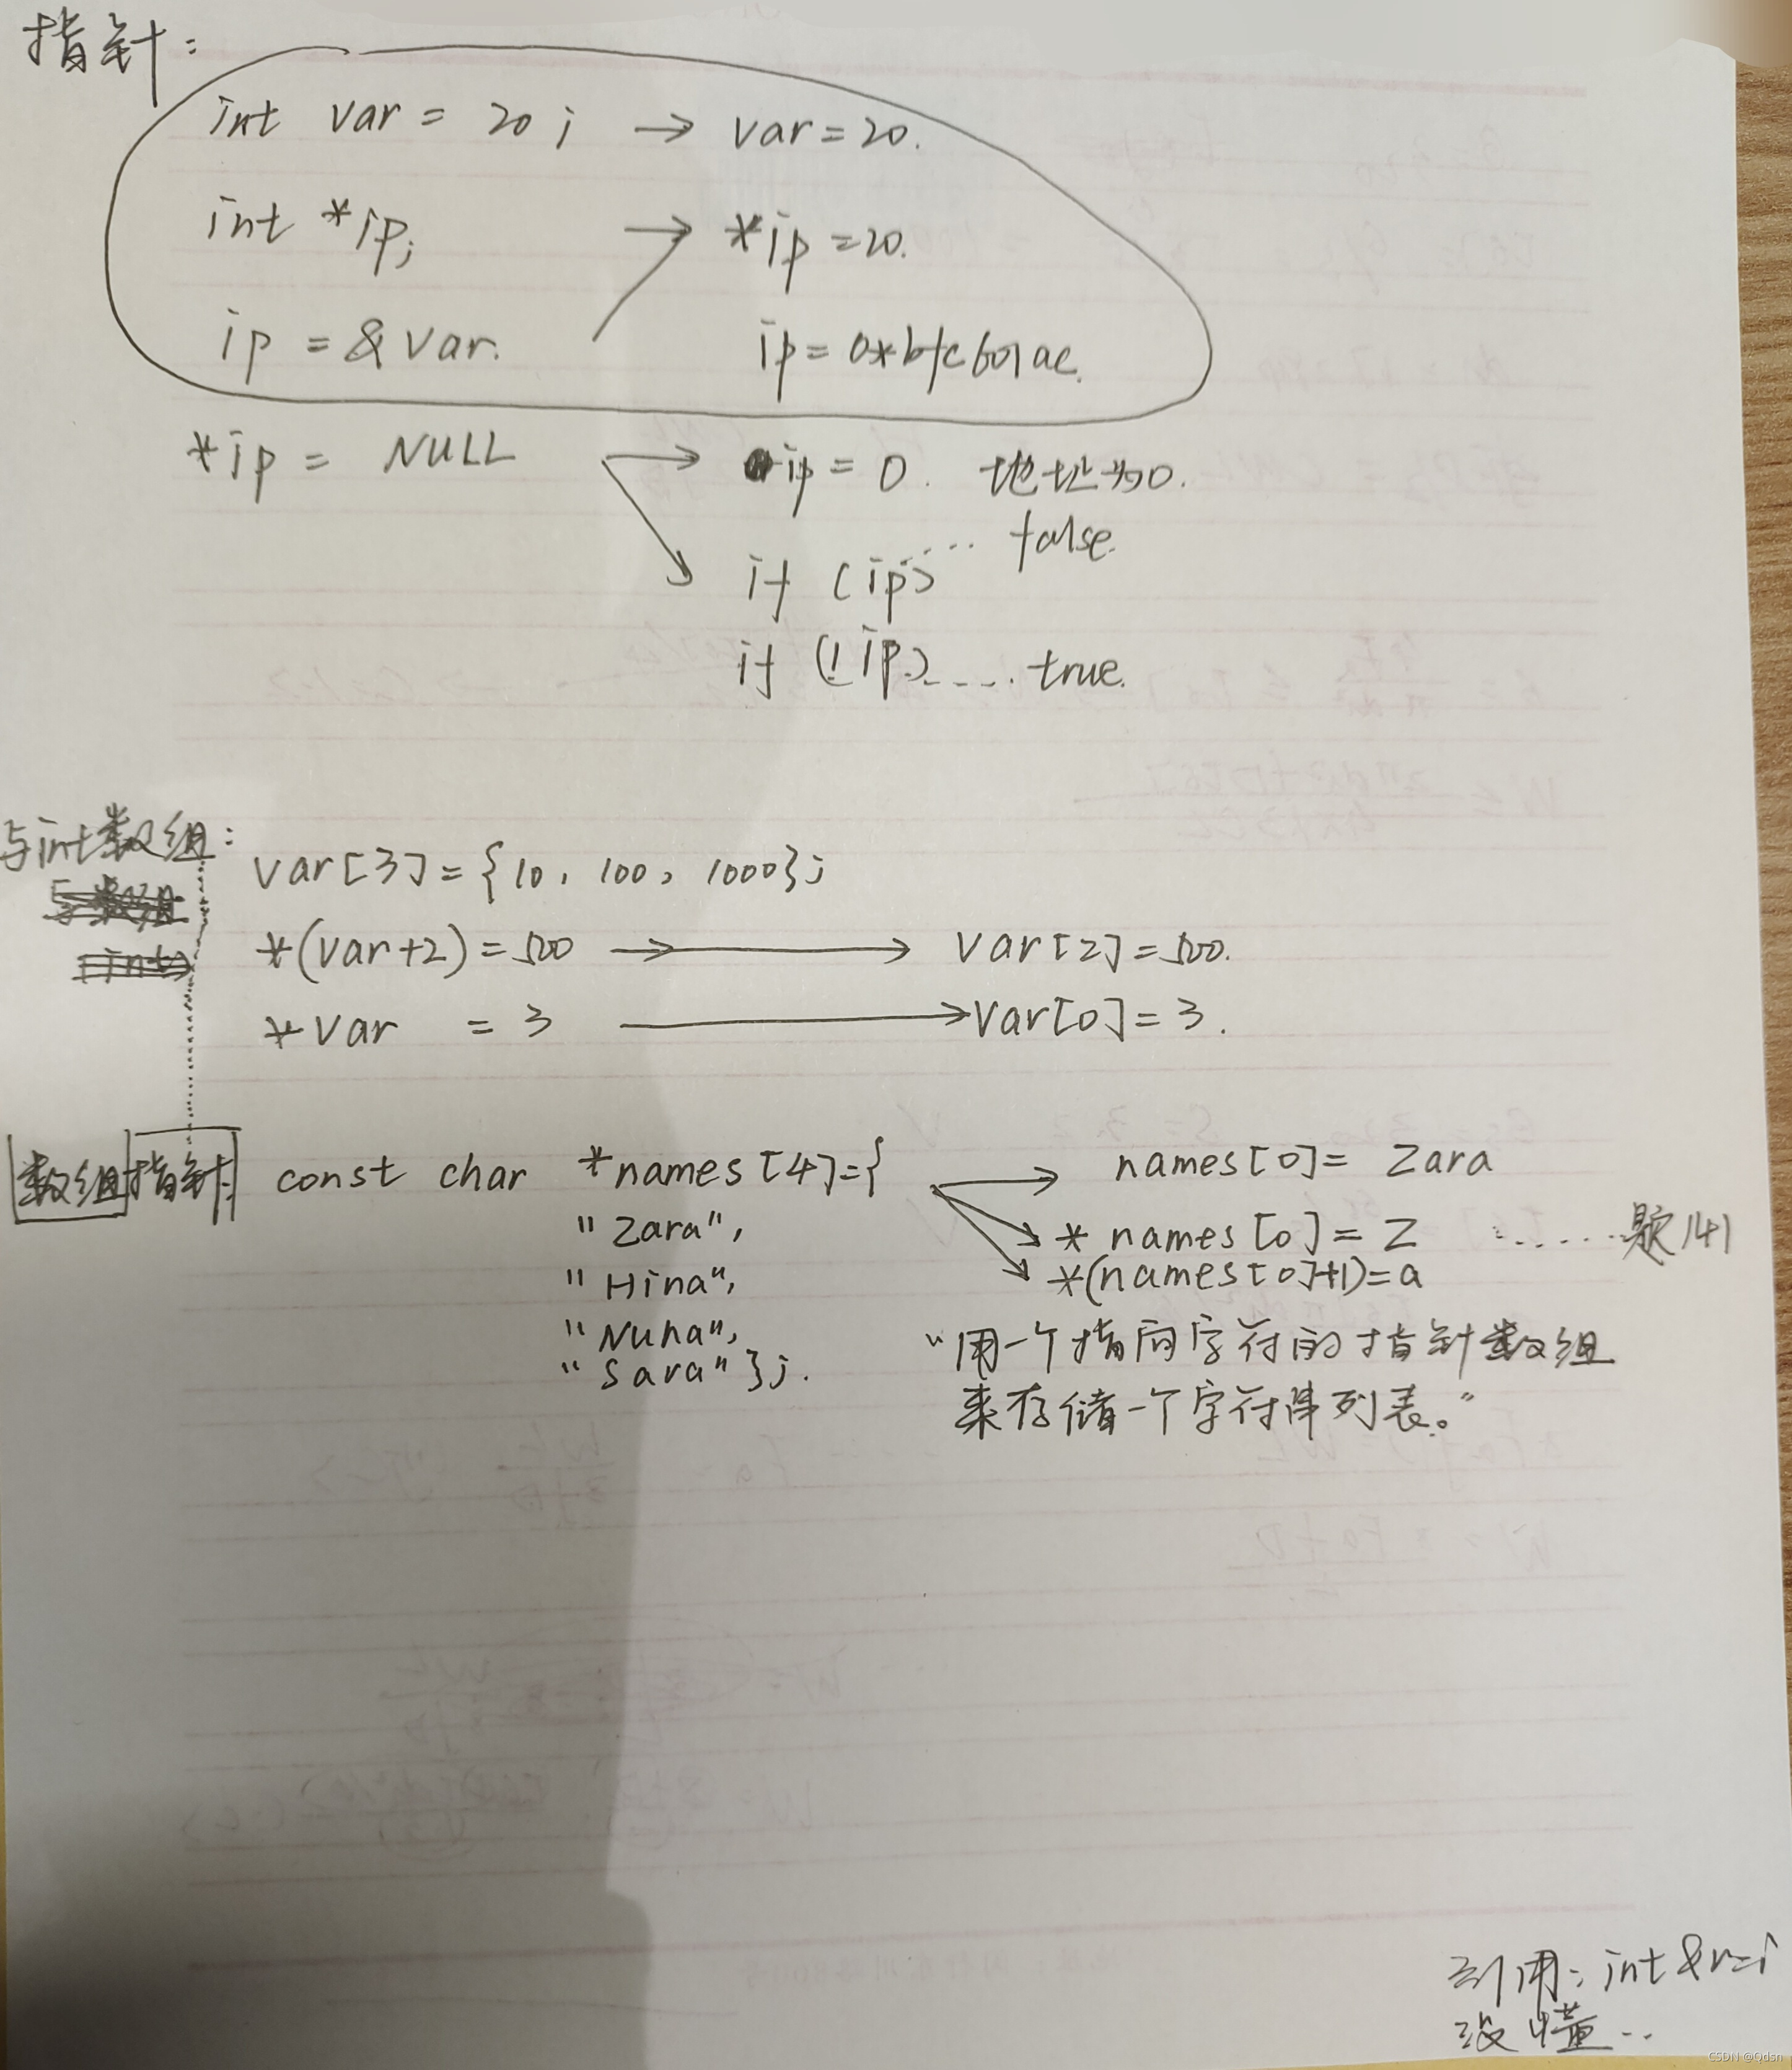 指针:
int var = 20; → var=20.
int *ip; → *ip=20.
ip = &var.
ip = 0*bfc601ac.
*ip = NULL → ip = 0. 地址为0.
if (ip) ..... false.
if (!ip) ..... true.
与int数组:
var[3]={10, 100, 1000};
*(var+2)=500 → var[2]=500.
*var = 3 → var[0]=3.
数组指针: const char *names[4]={
"Zara",
"Hina",
"Nuha",
"Sara"};
names[0]= Zara
* names[0]= Z ...... 题141
*(names[0]+1)=a
"用一个指向字符的指针数组
来存储一个字符串列表。"
引用: int &r=i
没懂...
CSDN @Qdsn